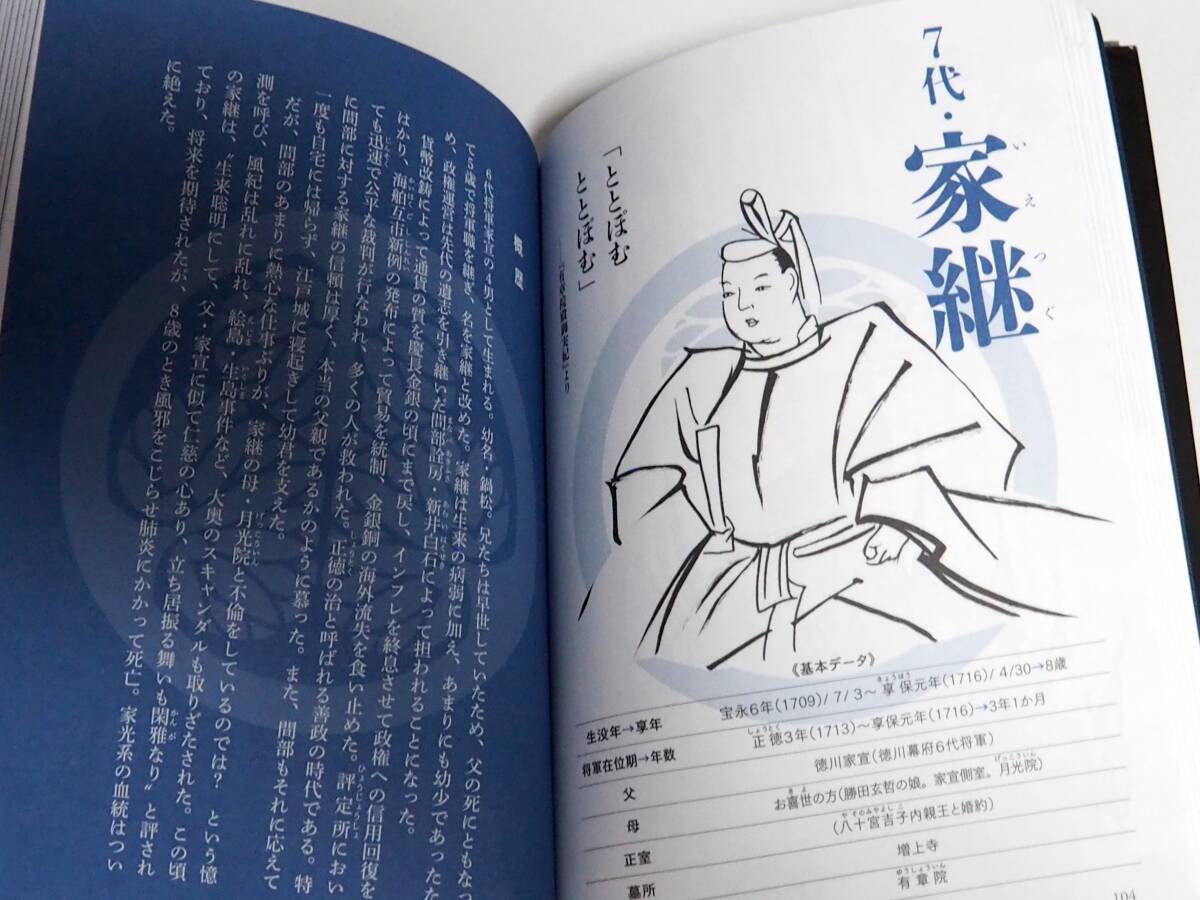 7代・家継
いえつぐ
「ととぽむ
ととぽむ」
──『有章院殿御実紀』より
《基本データ》
生没年→享年　宝永6年(1709)/ 7/ 3〜享保元年(1716)/ 4/30→8歳
将軍在位期→年数　正徳3年(1713)〜享保元年(1716)→3年1か月
父　徳川家宣(徳川幕府6代将軍)
母　お喜世の方(勝田玄哲の娘。家宣側室。月光院)
正室　(八十宮吉子内親王と婚約)
墓所　増上寺
有章院
104
6代将軍家宣の4男として生まれる。幼名・鍋松。兄たちは早世していたため、父の死にともなっ
て5歳で将軍職を継ぎ、名を家継と改めた。家継は生来の病弱に加え、あまりにも幼少であったた
め、政権運営は先代の遺志を引き継いだ間部詮房・新井白石によって担われることになった。
貨幣改鋳によって通貨の質を慶長金銀の頃にまで戻し、インフレを終息させて政権への信用回復を
はかり、海舶互市新例の発布によって貿易を統制、金銀銅の海外流失を食い止めた。評定所におい
ても迅速で公平な裁判が行なわれ、多くの人が救われた。正徳の治と呼ばれる善政の時代である。特
に間部に対する家継の信頼は厚く、本当の父親であるかのように慕った。また、間部もそれに応えて
一度も自宅には帰らず、江戸城に寝起きして幼君を支えた。
だが、間部のあまりに熱心な仕事ぶりが、家継の母・月光院と不倫をしているのでは？　という憶
測を呼び、風紀は乱れに乱れ、絵島・生島事件など、大奥のスキャンダルも取りざたされた。この頃
の家継は、“生来聡明にして、父・家宣に似て仁慈の心あり、立ち居振る舞いも閑雅なり”と評され
ており、将来を期待されたが、8歳のとき風邪をこじらせ肺炎にかかって死亡。家光系の血統はつい
に絶えた。